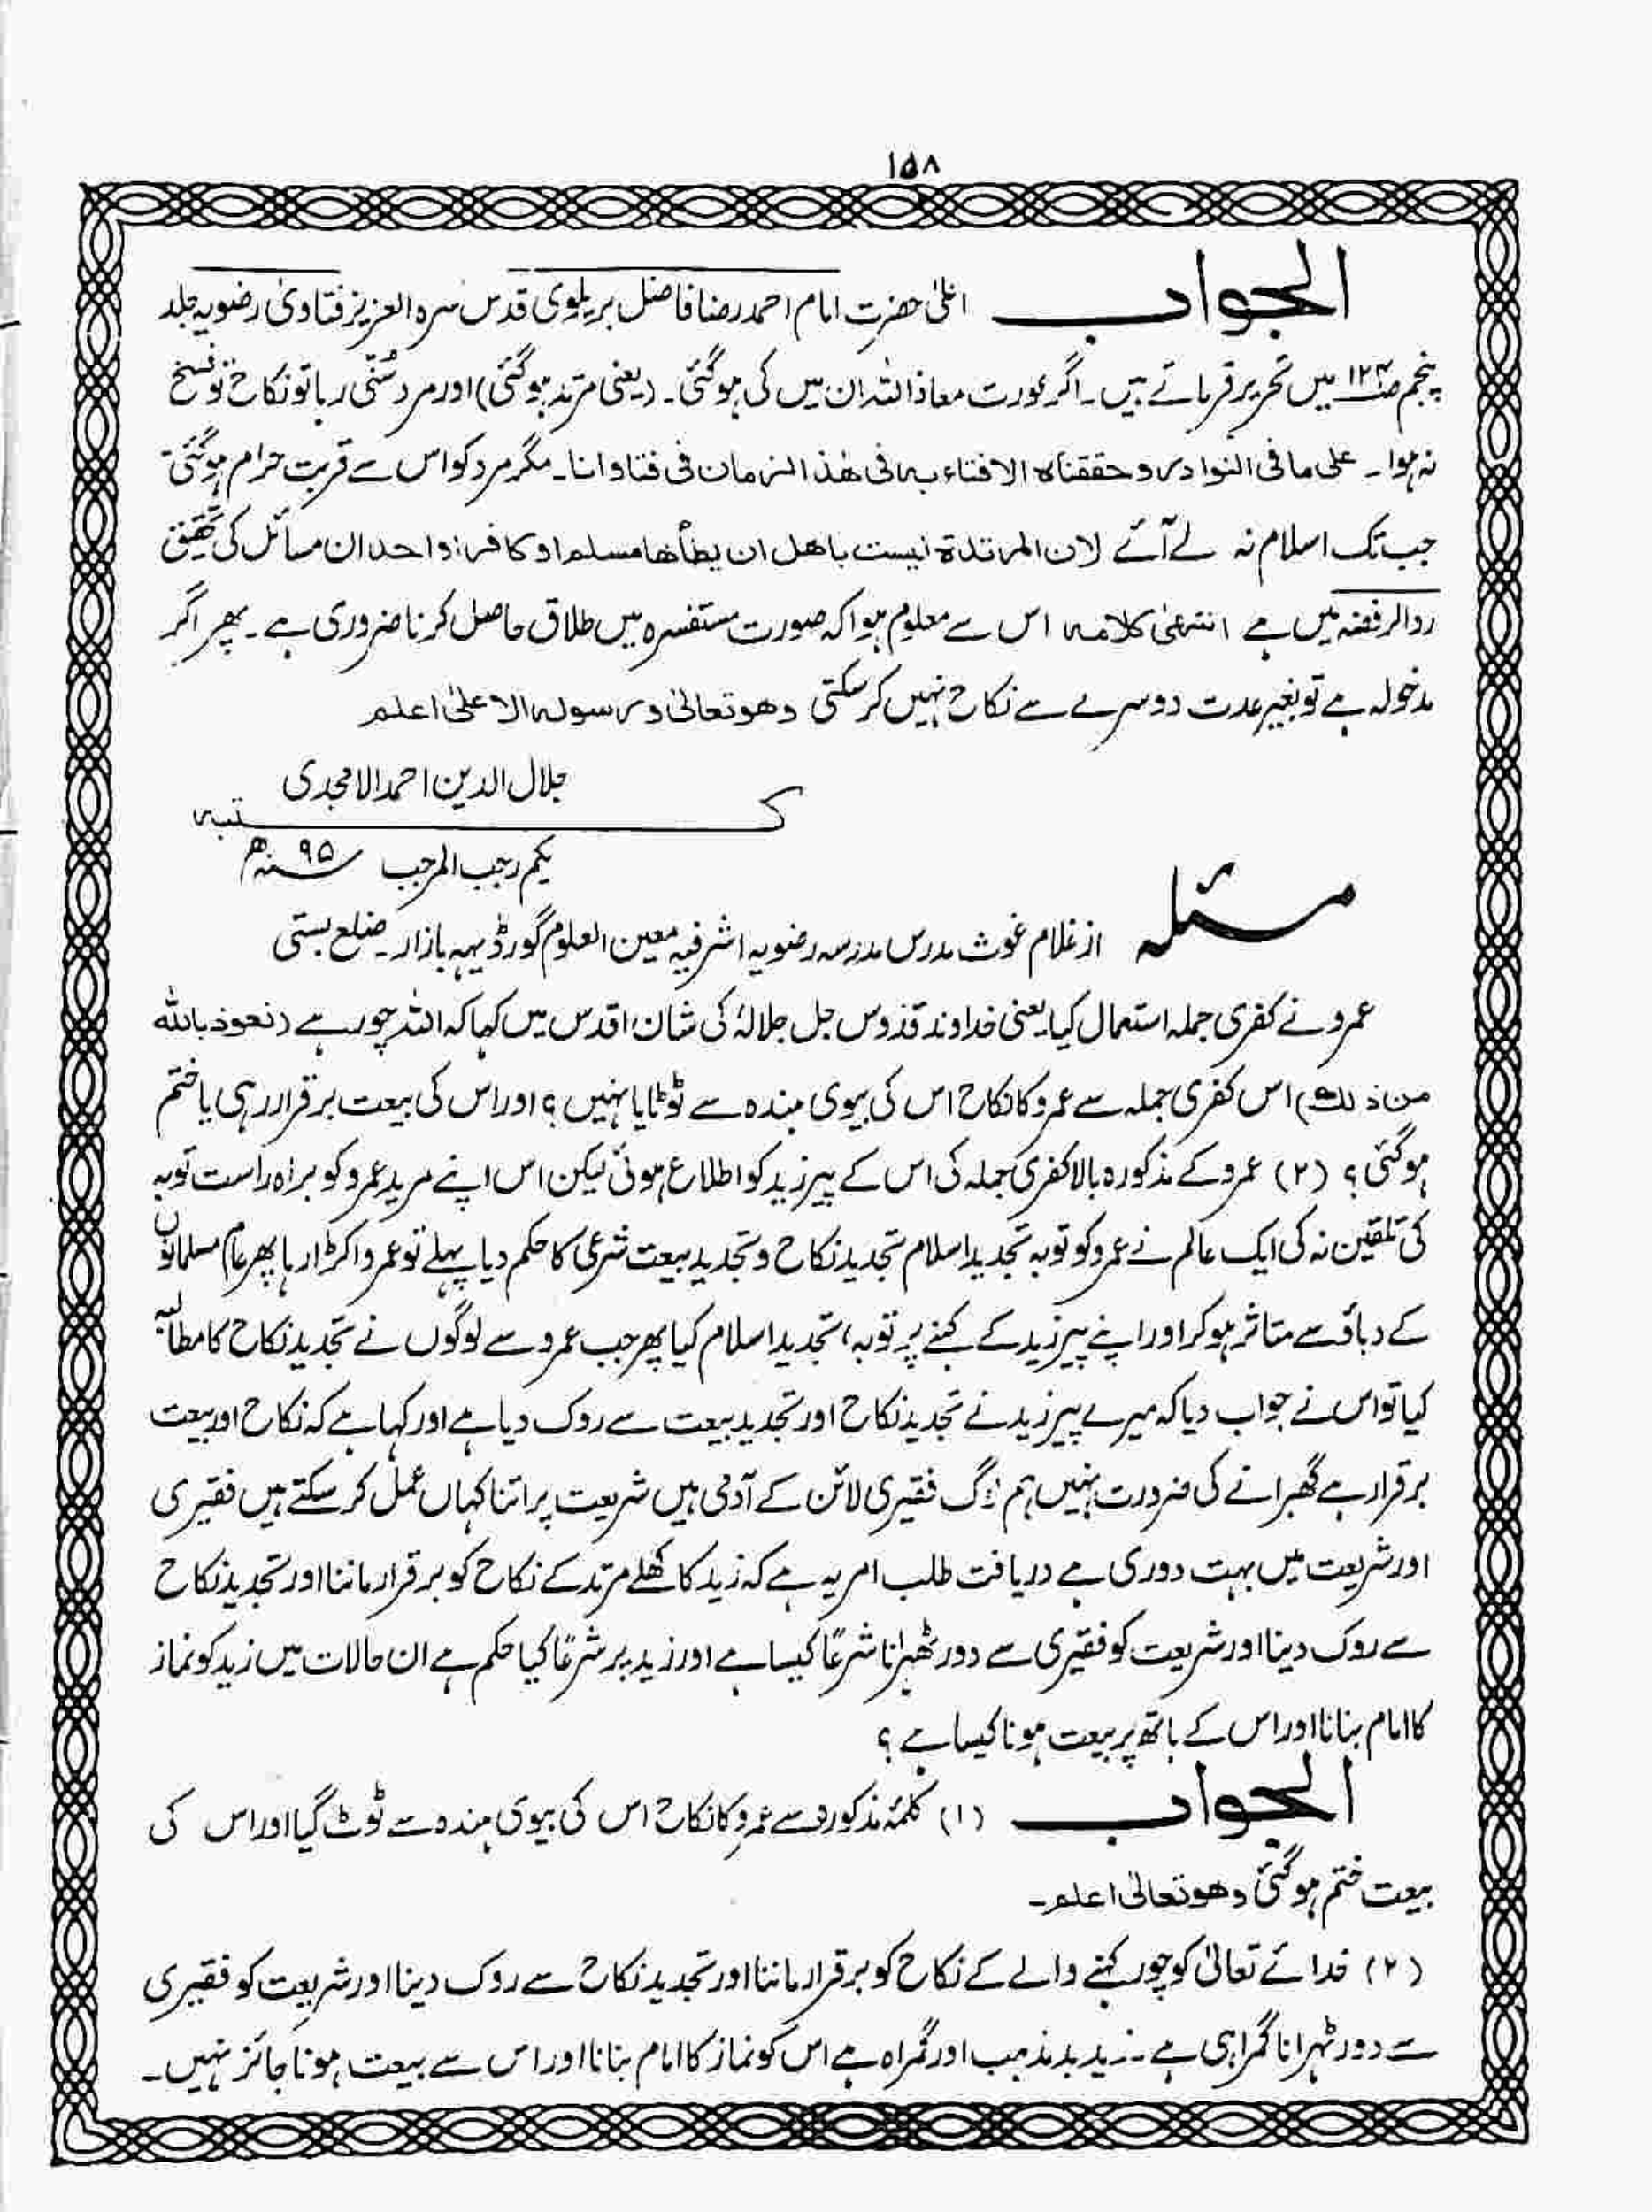 ۱۵۸
الجواب اعلیٰ حضرت امام احمد رضا فاضل بریلوی قدس سرہ العزیز فتاویٰ رضویہ جلد
پنجم ص۱۲۴ میں تحریر فرماتے ہیں۔ اگر عورت معاذ اللہ ان میں کی ہوگئی۔ (یعنی مرتد ہوگئی) اور مرد سُنّی رہا تو نکاح تو فسخ
نہ ہوا۔ علی ما فی النوادر وحققناہ الافتاء بہ فی ھٰذا الزمان فی فتاوانا۔ مگر مرد کو اس سے قربت حرام ہوگئی
جب تک اسلام نہ لے آئے لان المرتدۃ لیست باھل ان یطأھا مسلم او کافر او احد ان مسائل کی تحقیق
ردالرفضہ میں ہے انتھیٰ کلامہ اس سے معلوم ہوا کہ صورت مستفسرہ میں طلاق حاصل کرنا ضروری ہے۔ پھر اگر
مدخولہ ہے تو بغیر عدت دوسرے سے نکاح نہیں کرسکتی وھو تعالیٰ ورسولہ الاعلیٰ اعلم
جلال الدین احمد الامجدی
کتبہ
یکم رجب المرجب ۹۵سنہ ھ
مسئلہ از غلام غوث مدرس مدرسہ رضویہ اشرفیہ معین العلوم گورڈیہہ بازار۔ ضلع بستی
عمرو نے کفری جملہ استعمال کیا یعنی خداوند قدوس جل جلالہٗ کی شان اقدس میں کہا کہ اللہ چور ہے (نعوذ باللہ
من ذلک) اس کفری جملہ سے عمرو کا نکاح اس کی بیوی ہندہ سے ٹوٹا یا نہیں؟ اور اس کی بیعت برقرار رہی یا ختم
ہوگئی؟ (۲) عمرو کے مذکورہ بالا کفری جملہ کی اس کے پیر زید کو اطلاع ہوئی لیکن اس اپنے مرید عمرو کو براہ راست توبہ
کی تلقین نہ کی ایک عالم نے عمرو کو توبہ تجدید اسلام تجدید نکاح و تجدید بیعت شرعی کا حکم دیا پہلے تو عمرو اکڑا رہا پھر عام مسلمانوں
کے دباؤ سے متاثر ہوکر اور اپنے پیر زید کے کہنے پر توبہ، تجدید اسلام کیا پھر جب عمرو سے لوگوں نے تجدید نکاح کا مطالبہ
کیا تو اس نے جواب دیا کہ میرے پیر زید نے تجدید نکاح اور تجدید بیعت سے روک دیا ہے اور کہا ہے کہ نکاح اور بیعت
برقرار ہے گھبرانے کی ضرورت نہیں ہم لوگ فقیری لائن کے آدمی ہیں شریعت پر اتنا کہاں عمل کرسکتے ہیں فقیری
اور شریعت میں بہت دوری ہے دریافت طلب امر یہ ہے کہ زید کا کھلے مرتد کے نکاح کو برقرار ماننا اور تجدید نکاح
سے روک دینا اور شریعت کو فقیری سے دور ٹھہرانا شرعًا کیسا ہے اور زید پر شرعًا کیا حکم ہے ان حالات میں زید کو نماز
کا امام بنانا اور اس کے ہاتھ پر بیعت ہونا کیسا ہے؟
الجواب (۱) کلمۂ مذکورہ سے عمرو کا نکاح اس کی بیوی ہندہ سے ٹوٹ گیا اور اس کی
بیعت ختم ہوگئی وھو تعالیٰ اعلم۔
(۲) خدائے تعالیٰ کو چور کہنے والے کے نکاح کو برقرار ماننا اور تجدید نکاح سے روک دینا اور شریعت کو فقیری
سے دور ٹہرانا گمراہی ہے۔ زید بد مذہب اور گمراہ ہے اس کو نماز کا امام بنانا اور اس سے بیعت ہونا جائز نہیں۔